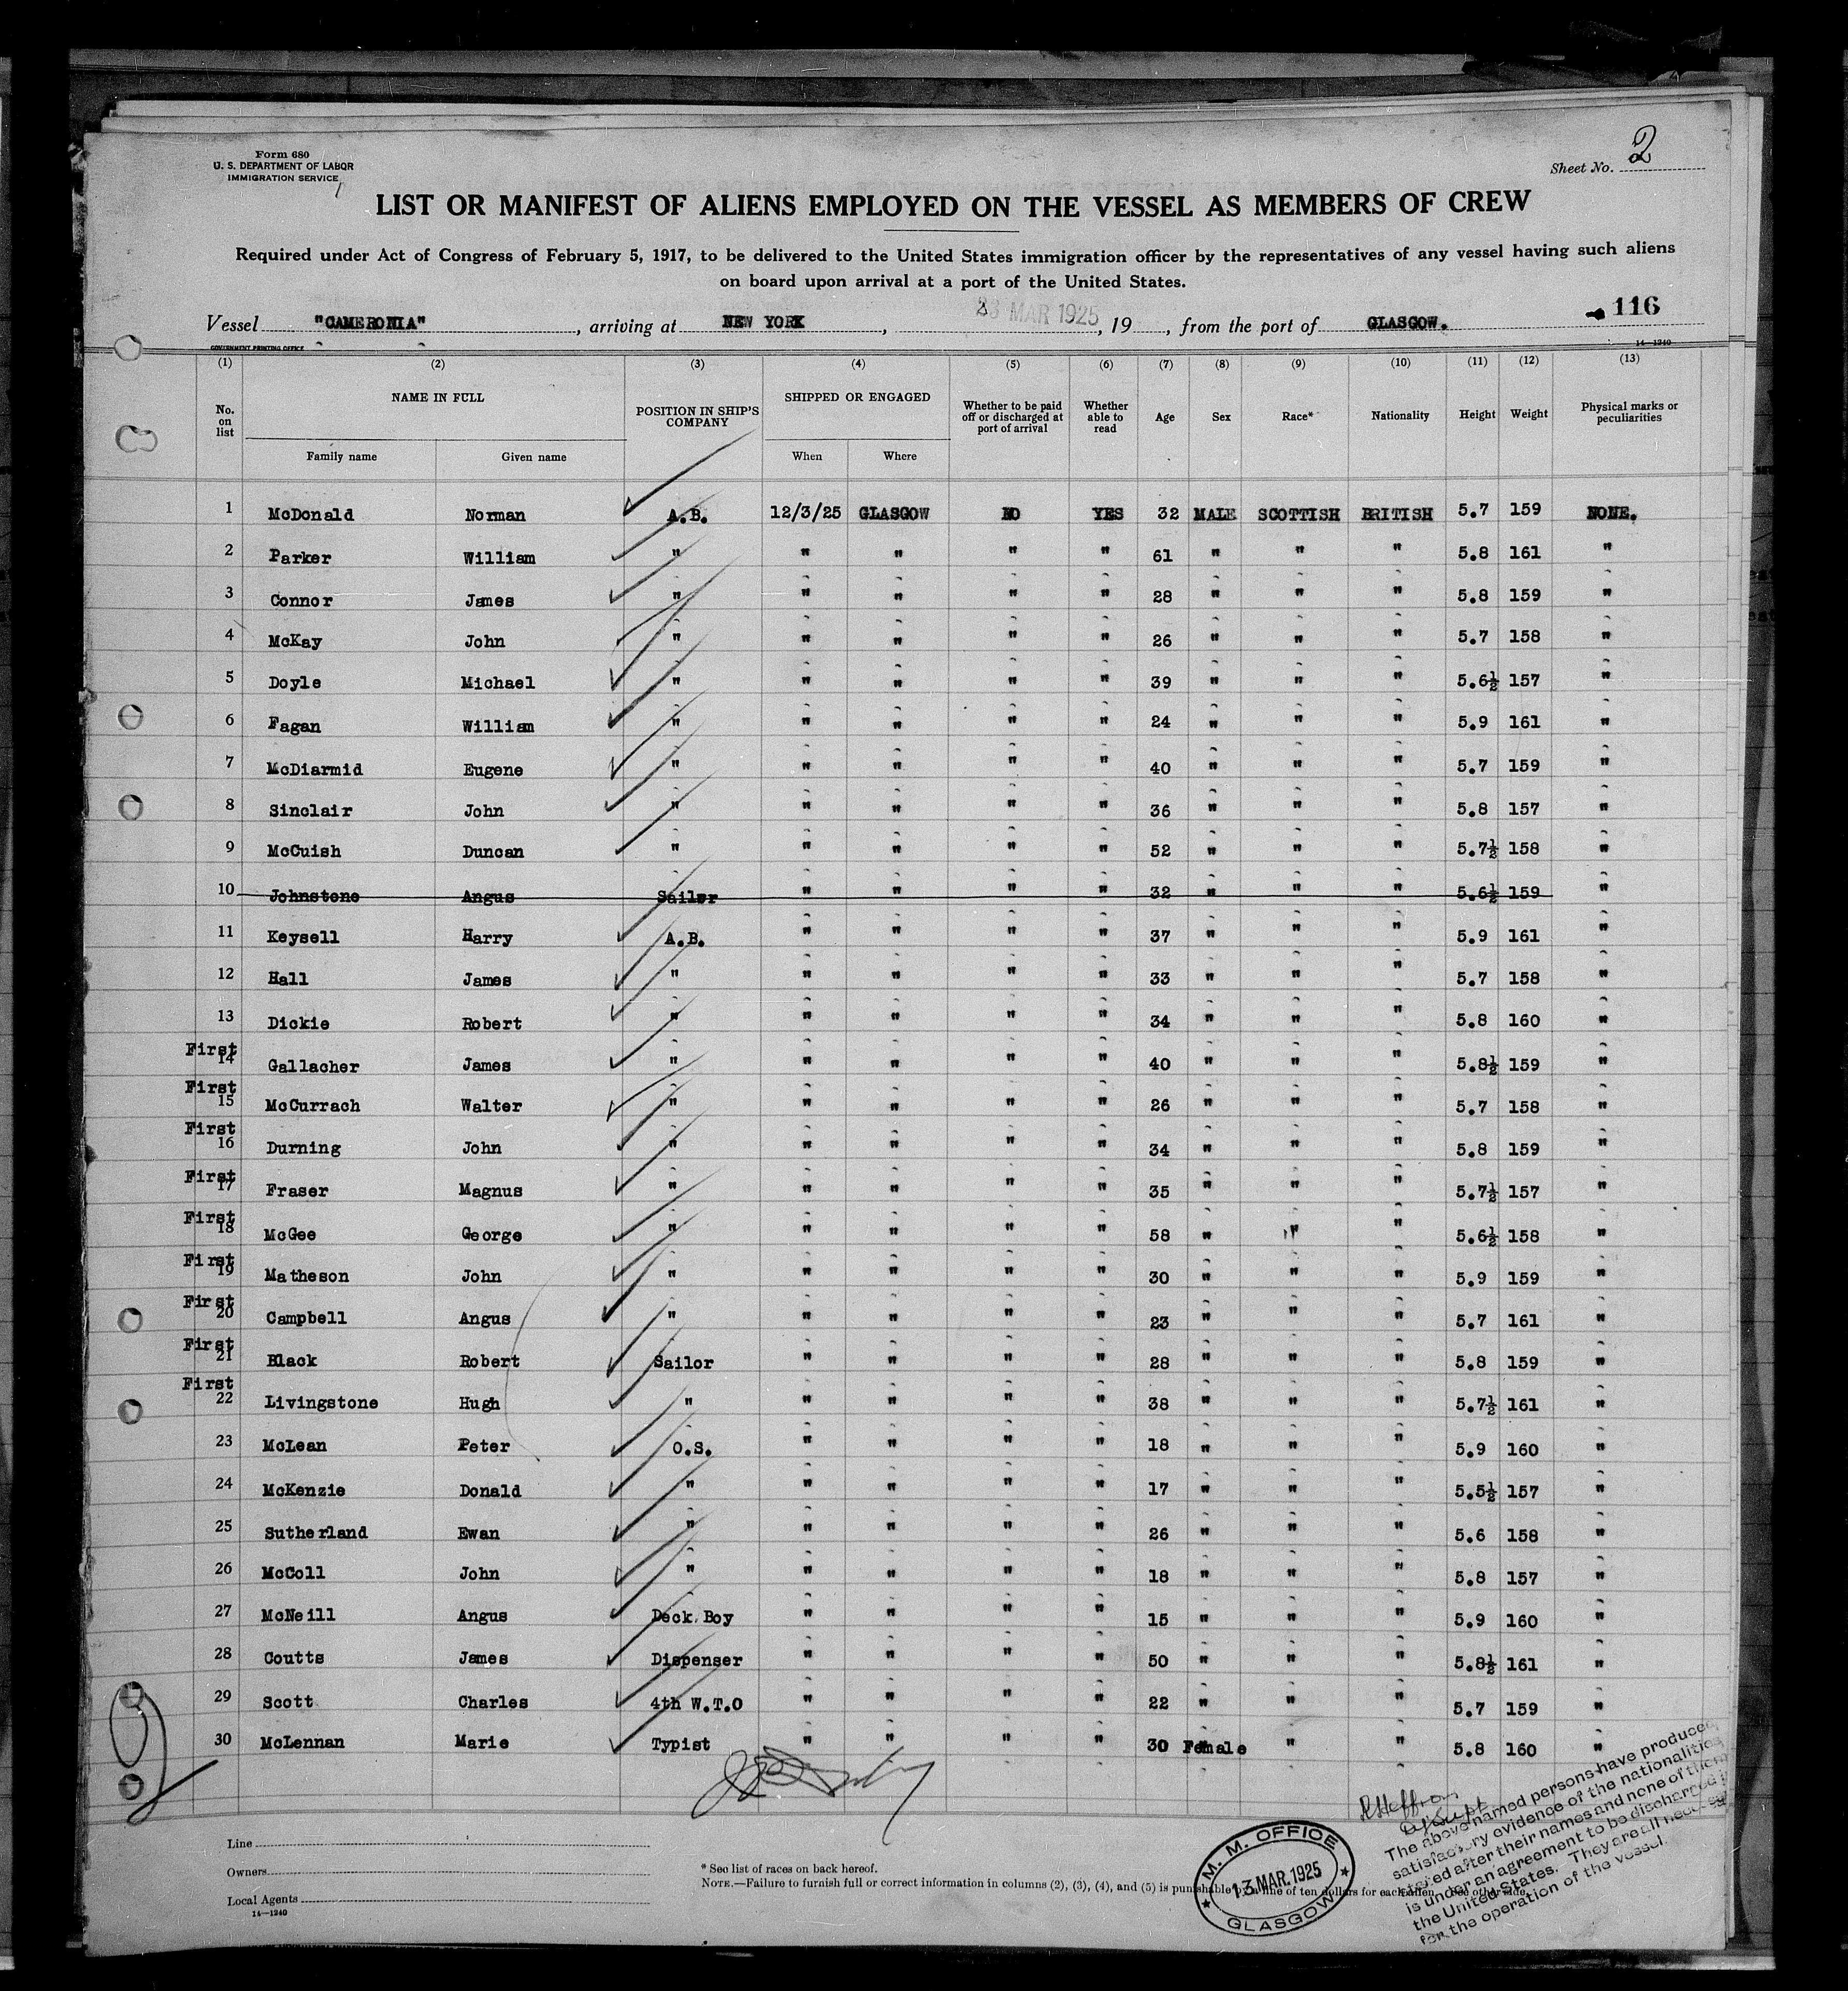 Form 680
U. S. DEPARTMENT OF LABOR
IMMIGRATION SERVICE
Sheet No. 2
LIST OR MANIFEST OF ALIENS EMPLOYED ON THE VESSEL AS MEMBERS OF CREW
Required under Act of Congress of February 5, 1917, to be delivered to the United States immigration officer by the representatives of any vessel having such aliens
on board upon arrival at a port of the United States.
116
Vessel "CAMERONIA", arriving at NEW YORK, 23 MAR 1925, 19 , from the port of GLASGOW.
GOVERNMENT PRINTING OFFICE 14—1240
(1) (2) (3) (4) (5) (6) (7) (8) (9) (10) (11) (12) (13)
No. on list NAME IN FULL POSITION IN SHIP'S COMPANY SHIPPED OR ENGAGED Whether to be paid off or discharged at port of arrival Whether able to read Age Sex Race* Nationality Height Weight Physical marks or peculiarities
Family name Given name When Where
1 McDonald Norman A.B. 12/3/25 GLASGOW NO YES 32 MALE SCOTTISH BRITISH 5.7 159 NONE.
2 Parker William " " " " " 61 " " " 5.8 161 "
3 Connor James " " " " " 28 " " " 5.8 159 "
4 McKay John " " " " " 26 " " " 5.7 158 "
5 Doyle Michael " " " " " 39 " " " 5.6½ 157 "
6 Fagan William " " " " " 24 " " " 5.9 161 "
7 McDiarmid Eugene " " " " " 40 " " " 5.7 159 "
8 Sinclair John " " " " " 36 " " " 5.8 157 "
9 McCuish Duncan " " " " " 52 " " " 5.7½ 158 "
10 Johnstone Angus Sailor " " " " 32 " " " 5.6½ 159 "
11 Keysell Harry A.B. " " " " 37 " " " 5.9 161 "
12 Hall James " " " " " 33 " " " 5.7 158 "
13 Dickie Robert " " " " " 34 " " " 5.8 160 "
First 14 Gallacher James " " " " " 40 " " " 5.8½ 159 "
First 15 McCurrach Walter " " " " " 26 " " " 5.7 158 "
First 16 Durning John " " " " " 34 " " " 5.8 159 "
First 17 Fraser Magnus " " " " " 35 " " " 5.7½ 157 "
First 18 McGee George " " " " " 58 " " " 5.6½ 158 "
First 19 Matheson John " " " " " 30 " " " 5.9 159 "
First 20 Campbell Angus " " " " " 23 " " " 5.7 161 "
First 21 Black Robert Sailor " " " " 28 " " " 5.8 159 "
First 22 Livingstone Hugh " " " " " 38 " " " 5.7½ 161 "
23 McLean Peter O.S. " " " " 18 " " " 5.9 160 "
24 McKenzie Donald " " " " " 17 " " " 5.5½ 157 "
25 Sutherland Ewan " " " " " 26 " " " 5.6 158 "
26 McColl John " " " " " 18 " " " 5.8 157 "
27 McNeill Angus Deck Boy " " " " 15 " " " 5.9 160 "
28 Coutts James Dispenser " " " " 50 " " " 5.8½ 161 "
29 Scott Charles 4th W.T.O " " " " 22 " " " 5.7 159 "
30 McLennan Marie Typist " " " " 30 Female " " 5.8 160 "
The above named persons have produced
satisfactory evidence of the nationalities
stated after their names and none of them
is under an agreement to be discharged in
the United States. They are all necessary
for the operation of the vessel.
M. M. OFFICE
13 MAR. 1925
GLASGOW
Line
Owners
Local Agents
14—1240
* See list of races on back hereof.
NOTE.—Failure to furnish full or correct information in columns (2), (3), (4), and (5) is punishable by a fine of ten dollars for each alien. See other side.